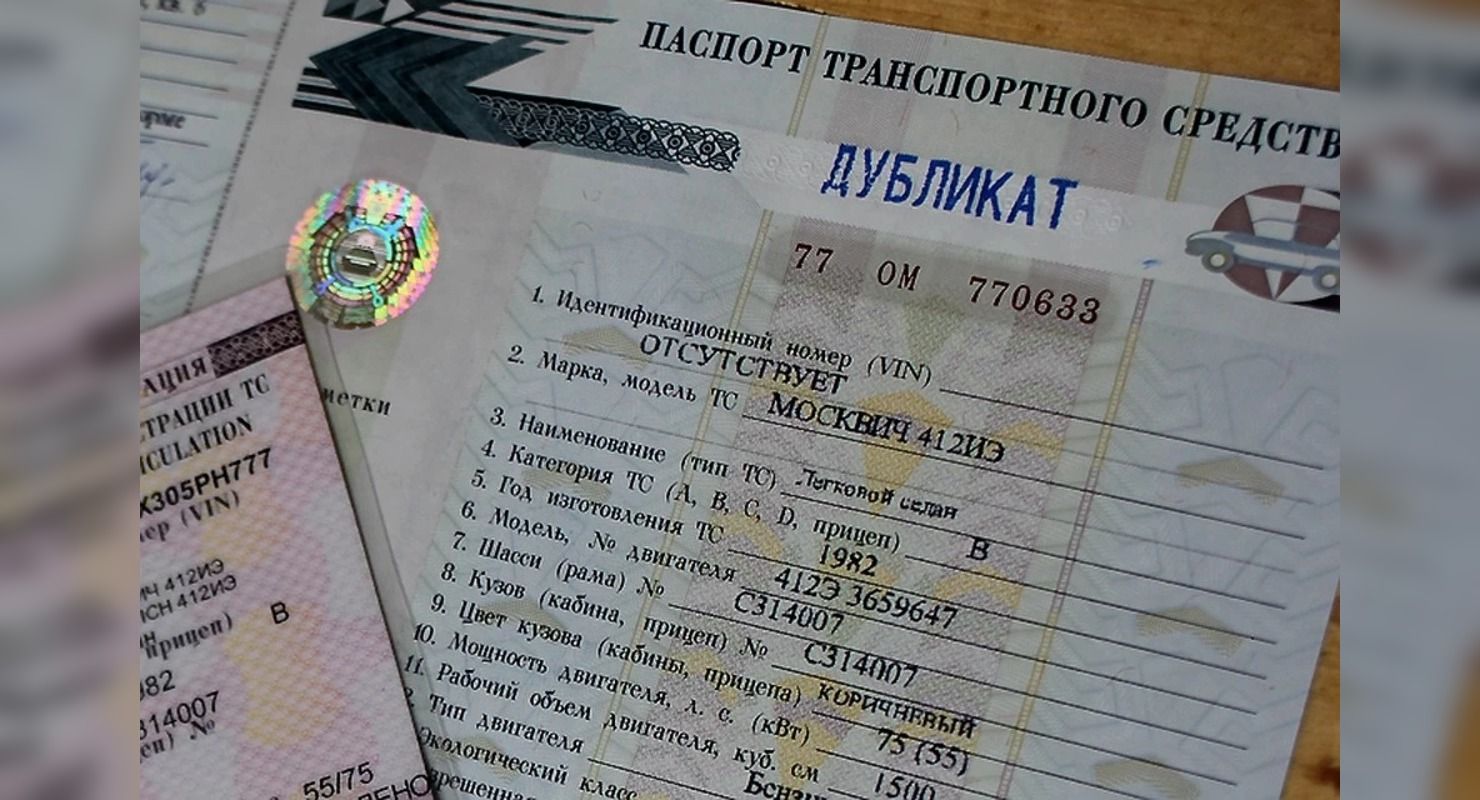 ПАСПОРТ ТРАНСПОРТНОГО СРЕДСТВ
ДУБЛИКАТ
77 ОМ 770633
1. Идентификационный номер (VIN)
ОТСУТСТВУЕТ
2. Марка, модель ТС МОСКВИЧ 412ИЭ
3. Наименование (тип ТС) Легковой седан
4. Категория ТС (А, В, С, D, прицеп) В
5. Год изготовления ТС 1982
6. Модель, № двигателя 412Э 3659647
7. Шасси (рама) № С314007
8. Кузов (кабина, прицеп) № С314007
9. Цвет кузова (кабины, прицепа) КОРИЧНЕВЫЙ
10. Мощность двигателя, л. с. (кВт) 75 (55)
11. Рабочий объем двигателя, куб. см 1500
Тип двигателя Бензи
Экологический класс
решенная
метки
АЦИЯ
СТРАЦИИ ТС
ICULATION
Х305РН777
ер (VIN)
ИЧ 412ИЭ
ICH 412ИЭ
прицеп) В
982
314007
еп) №
55/75
ЛЕНО